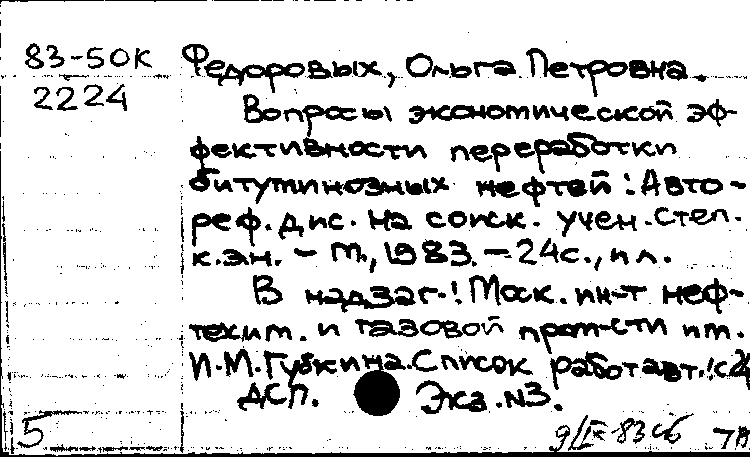 83-50К Федоровых, Ольга Петровна.
2224 Вопросы экономической эф-
фективности переработки
битуминозных нефтей: Авто-
реф. дис. на соиск. учен. степ.
к.э.н. - М., 1983. - 24с., ил.
В надзаг.: Моск. ин-т неф-
техим. и газовой пром-сти им.
И.М.Губкина. Список работ авт.: с.24
ДСП. Экз. N3.
5